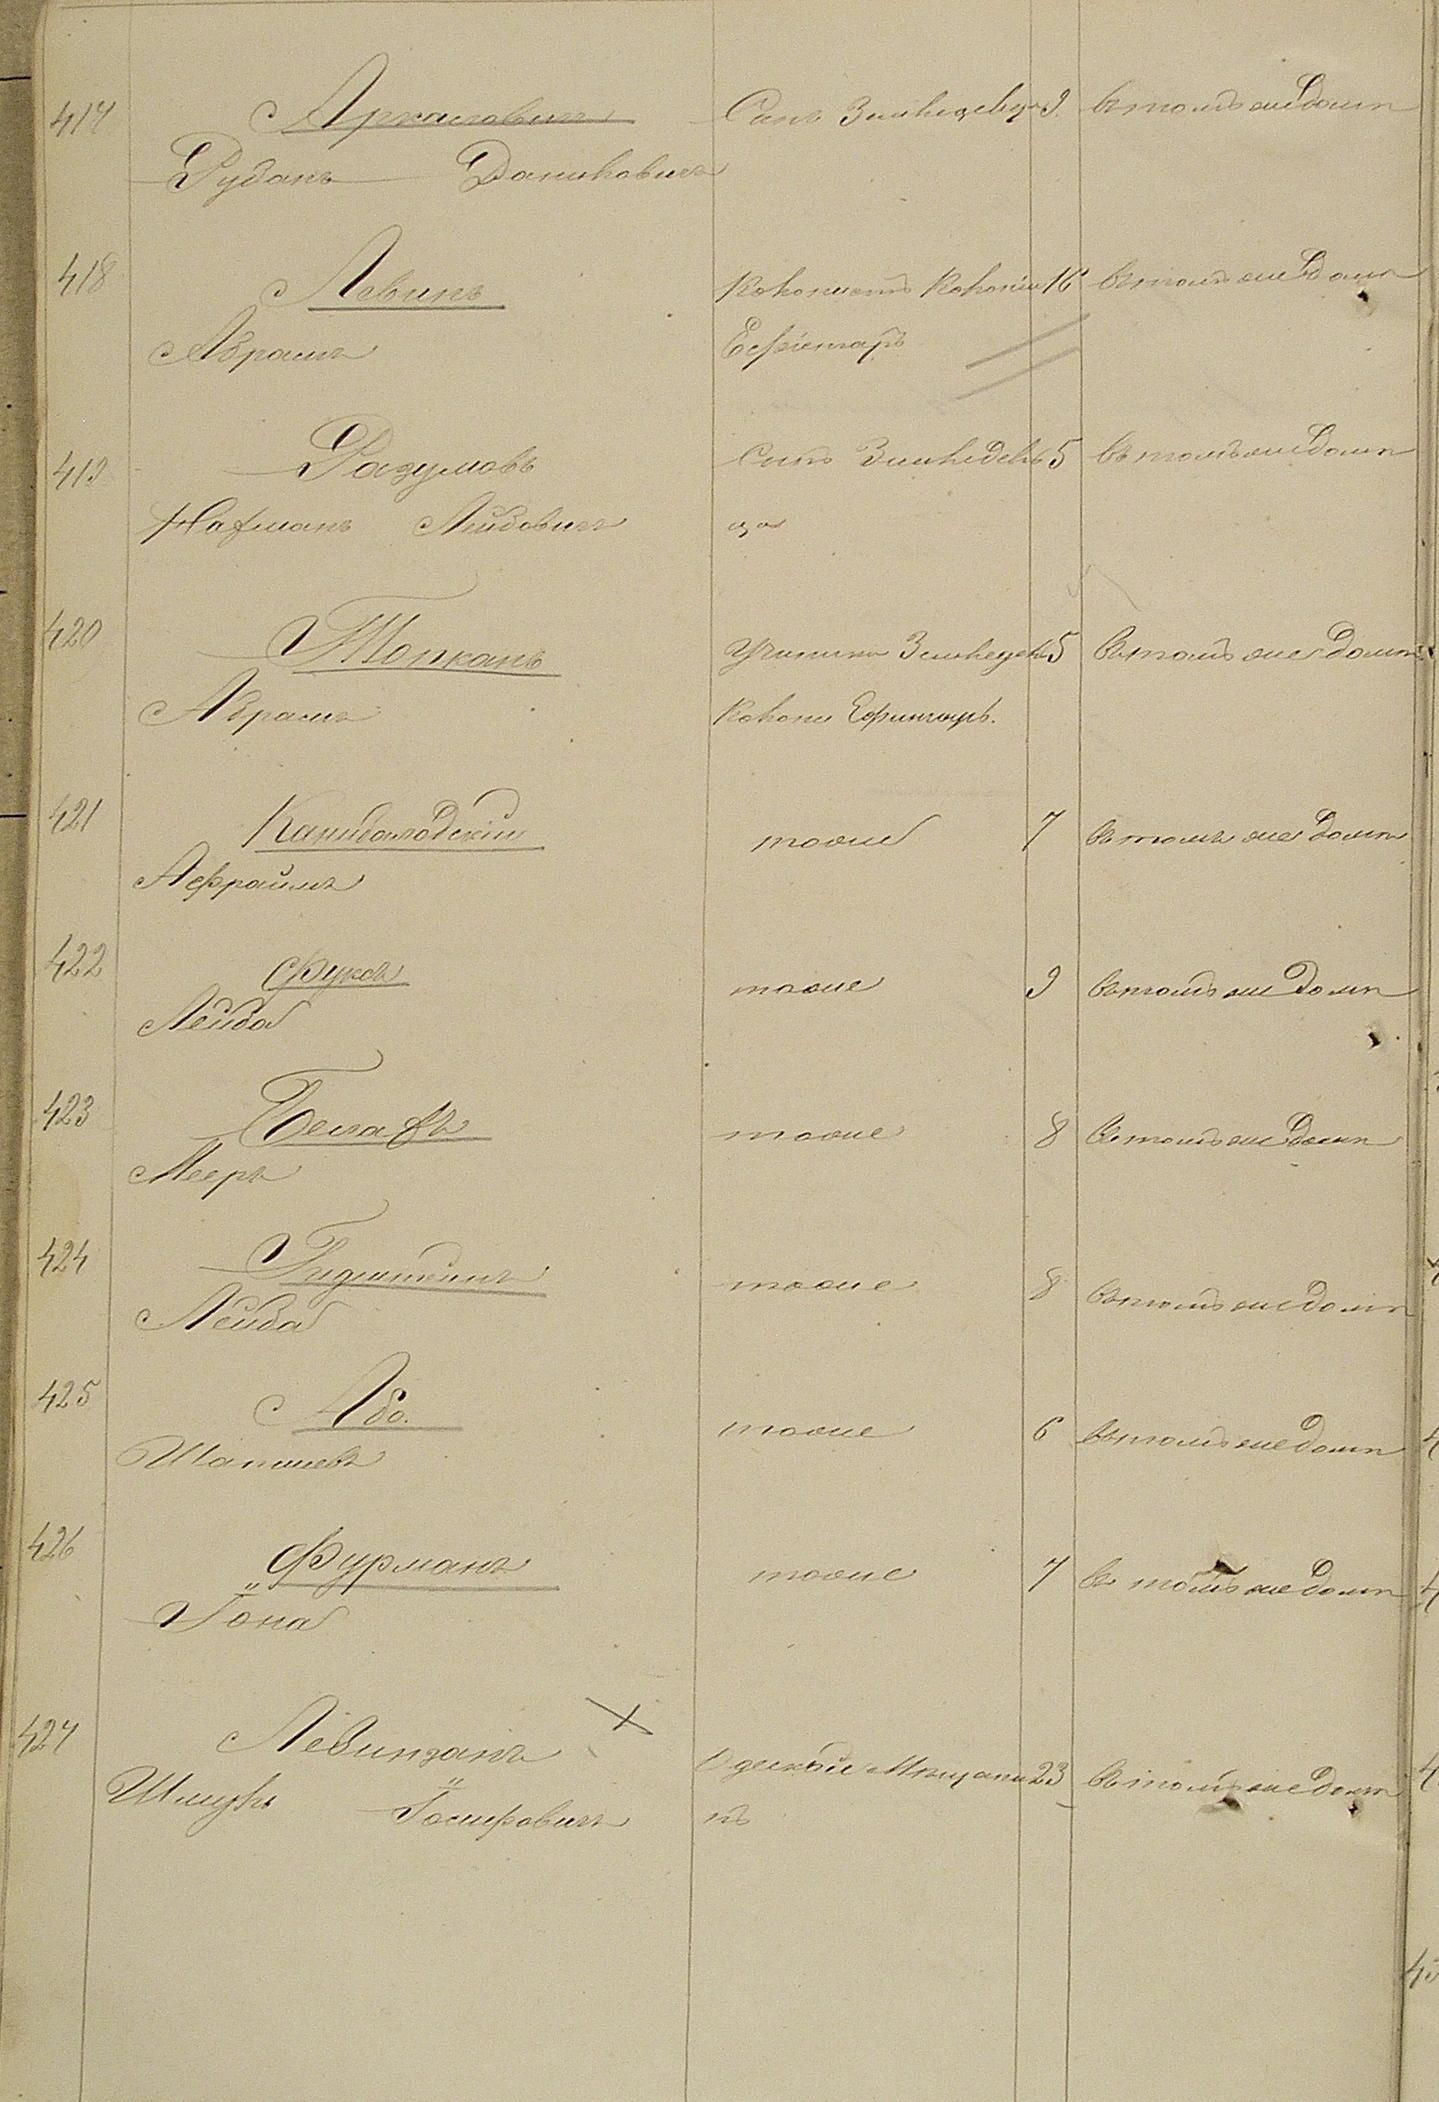 417 Сынъ Земледѣльца 9 въ томъ же домѣ
Рубанъ Даниловичъ
418 Левинъ Колонистъ Колоніи 16 въ томъ же домѣ
Абрамъ Ефингаръ
419 Разумовъ Сынъ Земледѣль 5 въ томъ же домѣ
Нахманъ Лейбовичъ ца
420 Топканъ Земледѣл 5 въ томъ же домѣ
Абрамъ Колоніи Ефингаръ.
421 тоже 7 въ томъ же домѣ
Афраимъ
422 Фуксъ тоже 9 въ томъ же домѣ
Лейба
423 тоже 8 въ томъ же домѣ
Мееръ
424 тоже 8 въ томъ же домѣ
Лейба
425 Або. тоже 6 въ томъ же домѣ
426 Фурманъ тоже 7 въ томъ же домѣ
Іона
427 Левинзонъ Одескій Мѣщани 23 въ томъ же домѣ
Шмуль Іосифовичъ нъ